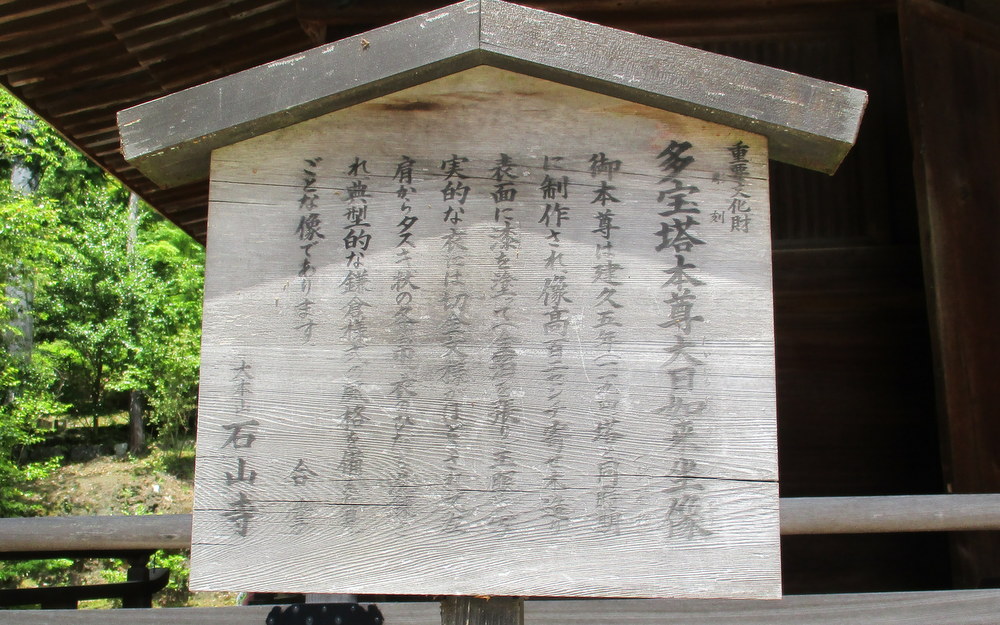 重要文化財
多宝塔本尊大日如来坐像
御本尊は建久五年(一一九四)塔と同時期
に制作され、像高百二センチ 寄せ木造り
表面に漆を塗って金箔を張り 玉眼
実的な衣には切金文様 ほどこされ 左
肩からタスキ状の条帛 衣のひだ
れ典型的な鎌倉様式の風格を備えた
ごとな像であります 合掌
大本山 石山寺